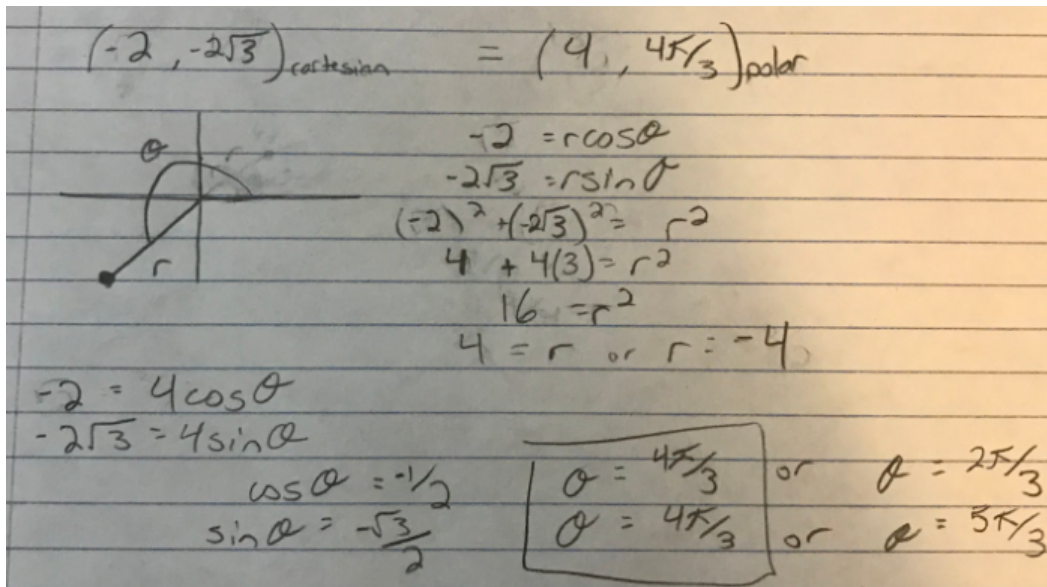 (-2, -2√3)cartesian = (4, 4π/3)polar
θ
r
-2 = rcosθ
-2√3 = rsinθ
(-2)² + (-2√3)² = r²
4 + 4(3) = r²
16 = r²
4 = r or r = -4
-2 = 4cosθ
-2√3 = 4sinθ
cosθ = -1/2
sinθ = -√3/2
θ = 4π/3 or θ = 2π/3
θ = 4π/3 or θ = 5π/3